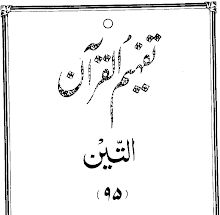 تفہیم القرآن
التّین
(۹۵)